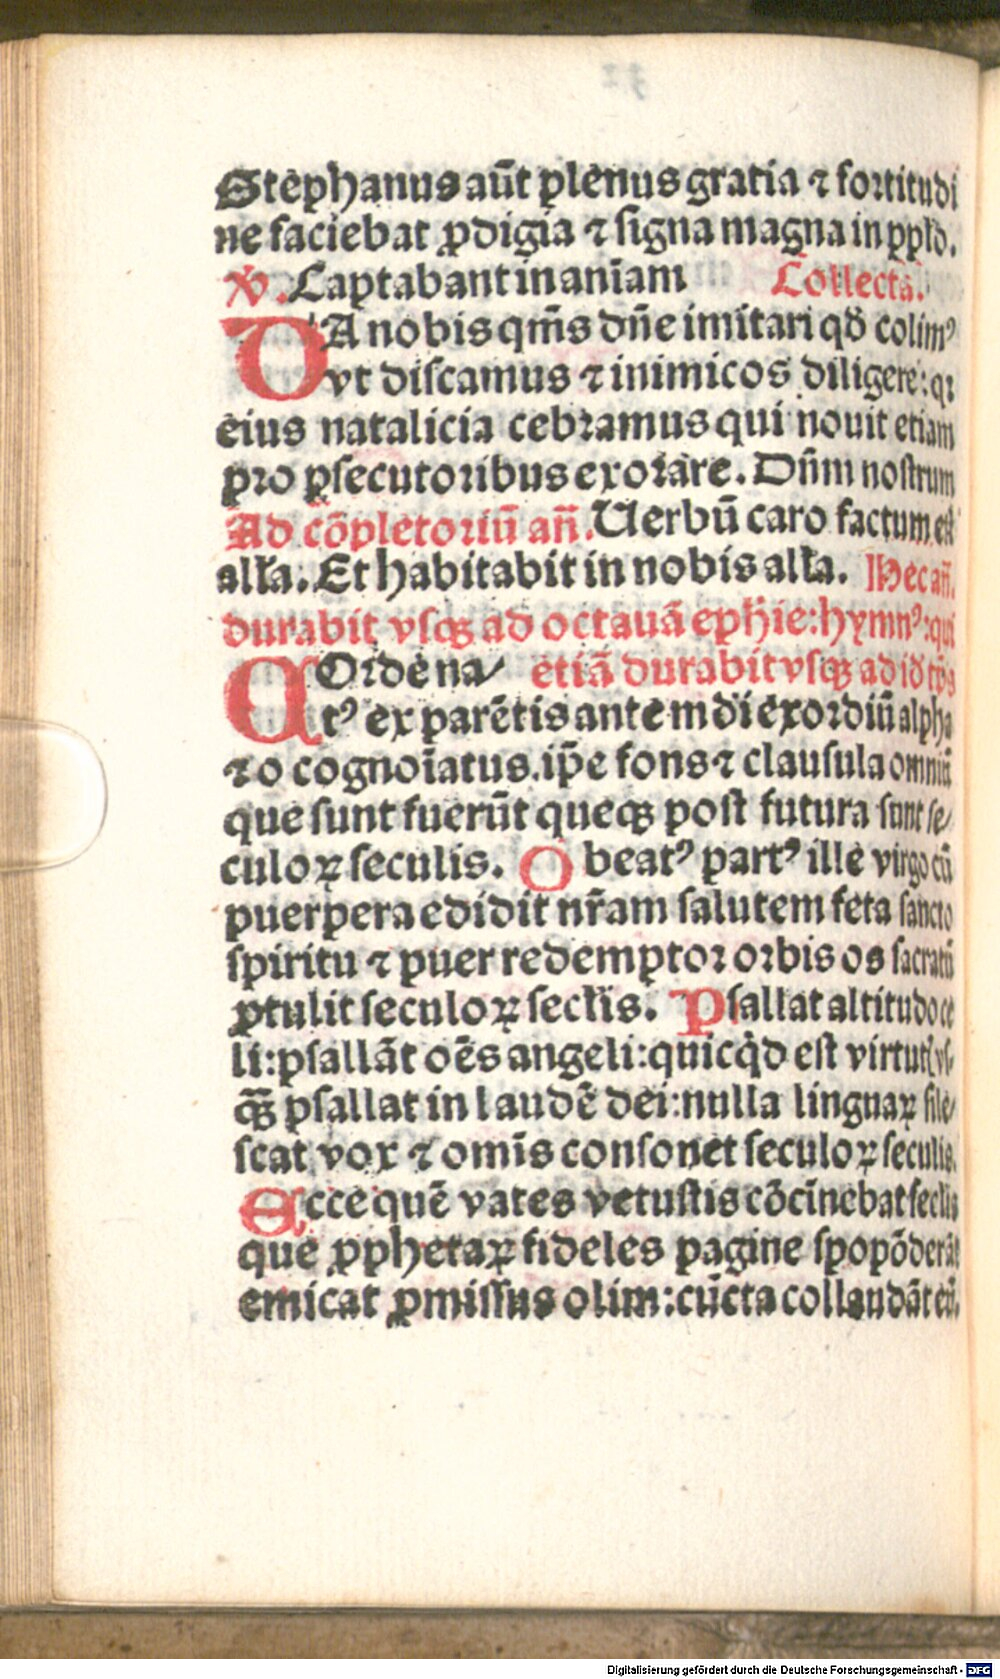 Stephanus aūt plenus gratia ⁊ fortitudi
ne faciebat ꝓdigia ⁊ signa magna in ppło.
℣. Captabant in aniam Collecta.
DA nobis qm̄s dn̄e imitari qđ colimꝰ
vt discamus ⁊ inimicos diligere: qꝛ
eius natalicia cebramus qui nouit etiam
pro ꝑsecutoribus exorare. Dn̄m nostrum
Ad cōpletoriū an̄. Uerbū caro factum est
alła. Et habitabit in nobis alła. Hec an̄.
durabit vsqꝫ ad octauā ephie: hymnꝰ: qui
COrde na/ etiā durabit vsqꝫ ad id tp̄s
tꝰ ex parētis ante mūdi exordiū alpha
⁊ o cognoīatus. ip̄e fons ⁊ clausula omniū
que sunt fuerūt queqꝫ post futura sunt se/
culoꝝ seculis. O beatꝰ partꝰ ille virgo cū
puerpera edidit nr̄am salutem feta sancto
spiritu ⁊ puer redemptor orbis os sacratū
ꝓtulit seculoꝝ seclis. Psallat altitudo ce
li: psallāt oēs angeli: quicq̇d est virtutꝭ vs-
qꝫ psallat in laudē dei: nulla linguaꝝ sile/
scat vox ⁊ omīs consonet seculoꝝ seculis.
Ecce quē vates vetustis cōcinebat seclis
que ꝓphetaꝝ fideles pagine spopōderāt
emicat ꝓmissus olim: cūcta collaudāt eū.
Digitalisierung gefördert durch die Deutsche Forschungsgemeinschaft - DFG